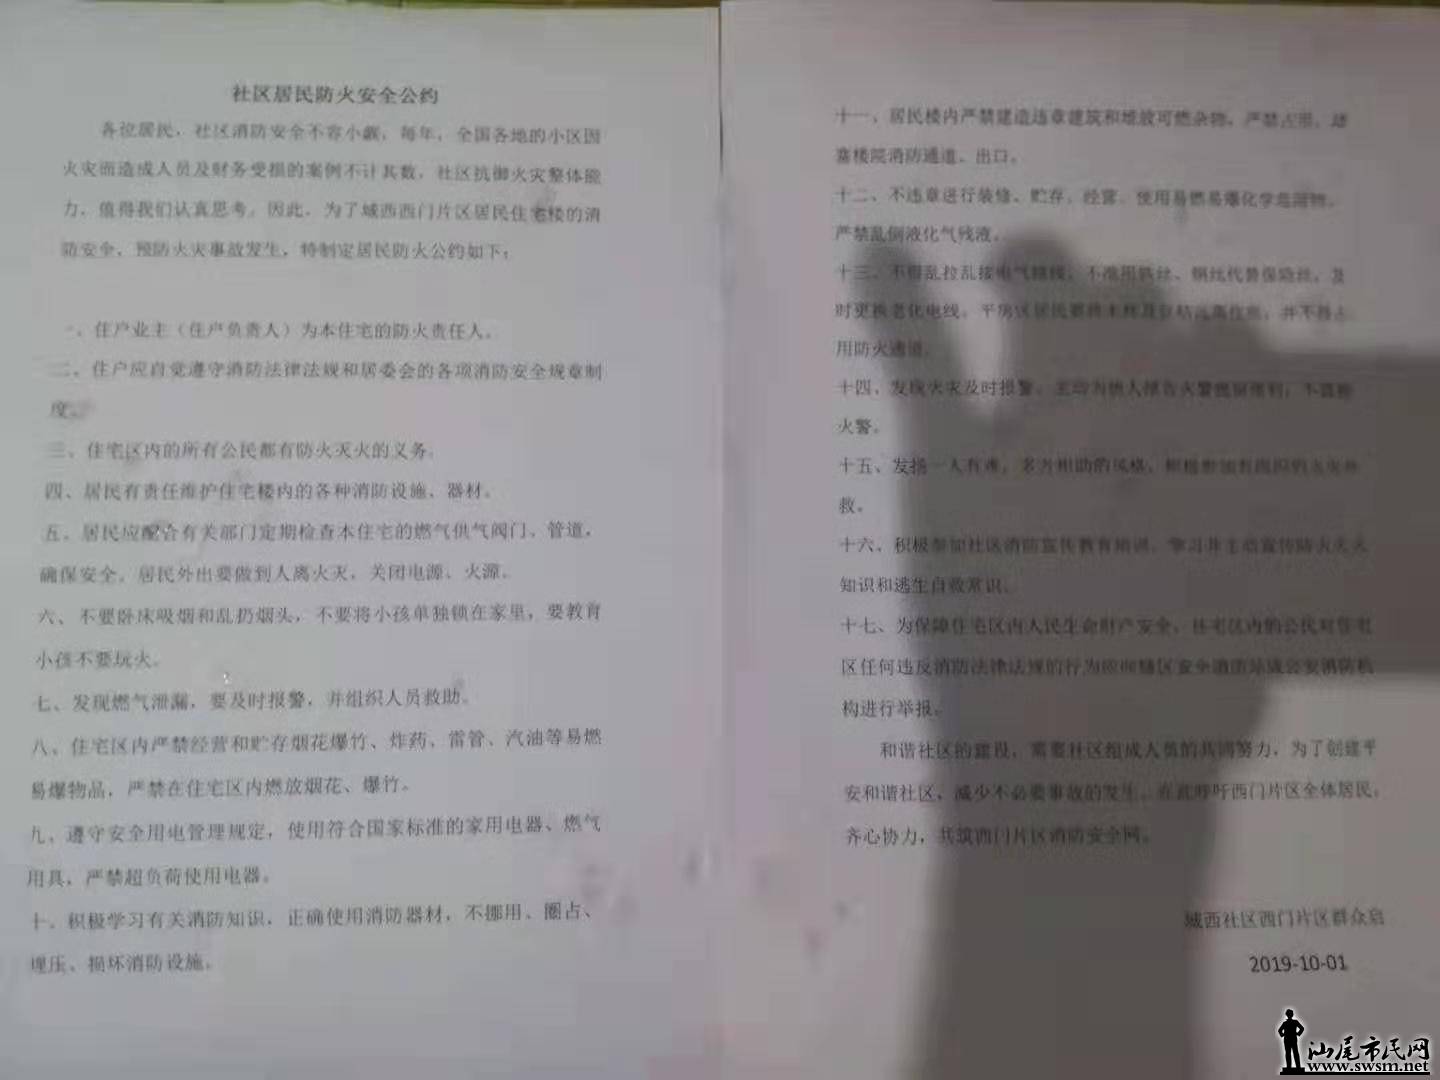 社区居民防火安全公约
各位居民，社区消防安全不容小觑，每年，全国各地的小区因
火灾而造成人员及财务受损的案例不计其数，社区抗御火灾整体能
力，值得我们认真思考。因此，为了城西西门片区居民住宅楼的消
防安全，预防火灾事故发生，特制定居民防火公约如下：
一、住户业主（住户负责人）为本住宅的防火责任人。
二、住户应自觉遵守消防法律法规和居委会的各项消防安全规章制
度。
三、住宅区内的所有公民都有防火灭火的义务。
四、居民有责任维护住宅楼内的各种消防设施、器材。
五、居民应配合有关部门定期检查本住宅的燃气供气阀门、管道，
确保安全。居民外出要做到人离火灭，关闭电源、火源。
六、不要卧床吸烟和乱扔烟头，不要将小孩单独锁在家里，要教育
小孩不要玩火。
七、发现燃气泄漏，要及时报警，并组织人员救助。
八、住宅区内严禁经营和贮存烟花爆竹、炸药、雷管、汽油等易燃
易爆物品，严禁在住宅区内燃放烟花、爆竹。
九、遵守安全用电管理规定，使用符合国家标准的家用电器、燃气
用具，严禁超负荷使用电器。
十、积极学习有关消防知识，正确使用消防器材，不挪用、圈占、
埋压、损坏消防设施。
十一、居民楼内严禁建造违章建筑和堆放可燃杂物，严禁占用、堵
塞楼院消防通道、出口。
十二、不违章进行装修、贮存、经营、使用易燃易爆化学危险物，
严禁乱倒液化气残液。
十三、不得乱拉乱接电气线路，不准用铁丝、铜丝代替保险丝，及
时更换老化电线。平房区居民要将木样及容易远离住房，并不得占
用防火通道。
十四、发现火灾及时报警，主动为他人报告火警提供便利，不谎报
火警。
十五、发扬一人有难，多方相助的风格，积极参加有组织的火灾扑
救。
十六、积极参加社区消防宣传教育培训，学习并主动宣传防火灭火
知识和逃生自救常识。
十七、为保障住宅区内人民生命财产安全，住宅区内的公民对住宅
区任何违反消防法律法规的行为应向辖区安全消防站或公安消防机
构进行举报。
和谐社区的建设，需要社区组成人员的共同努力，为了创建平
安和谐社区，减少不必要事故的发生，在此呼吁西门片区全体居民，
齐心协力，共筑西门片区消防安全网。
城西社区西门片区群众启
2019-10-01
汕尾市民网
www.swsm.net